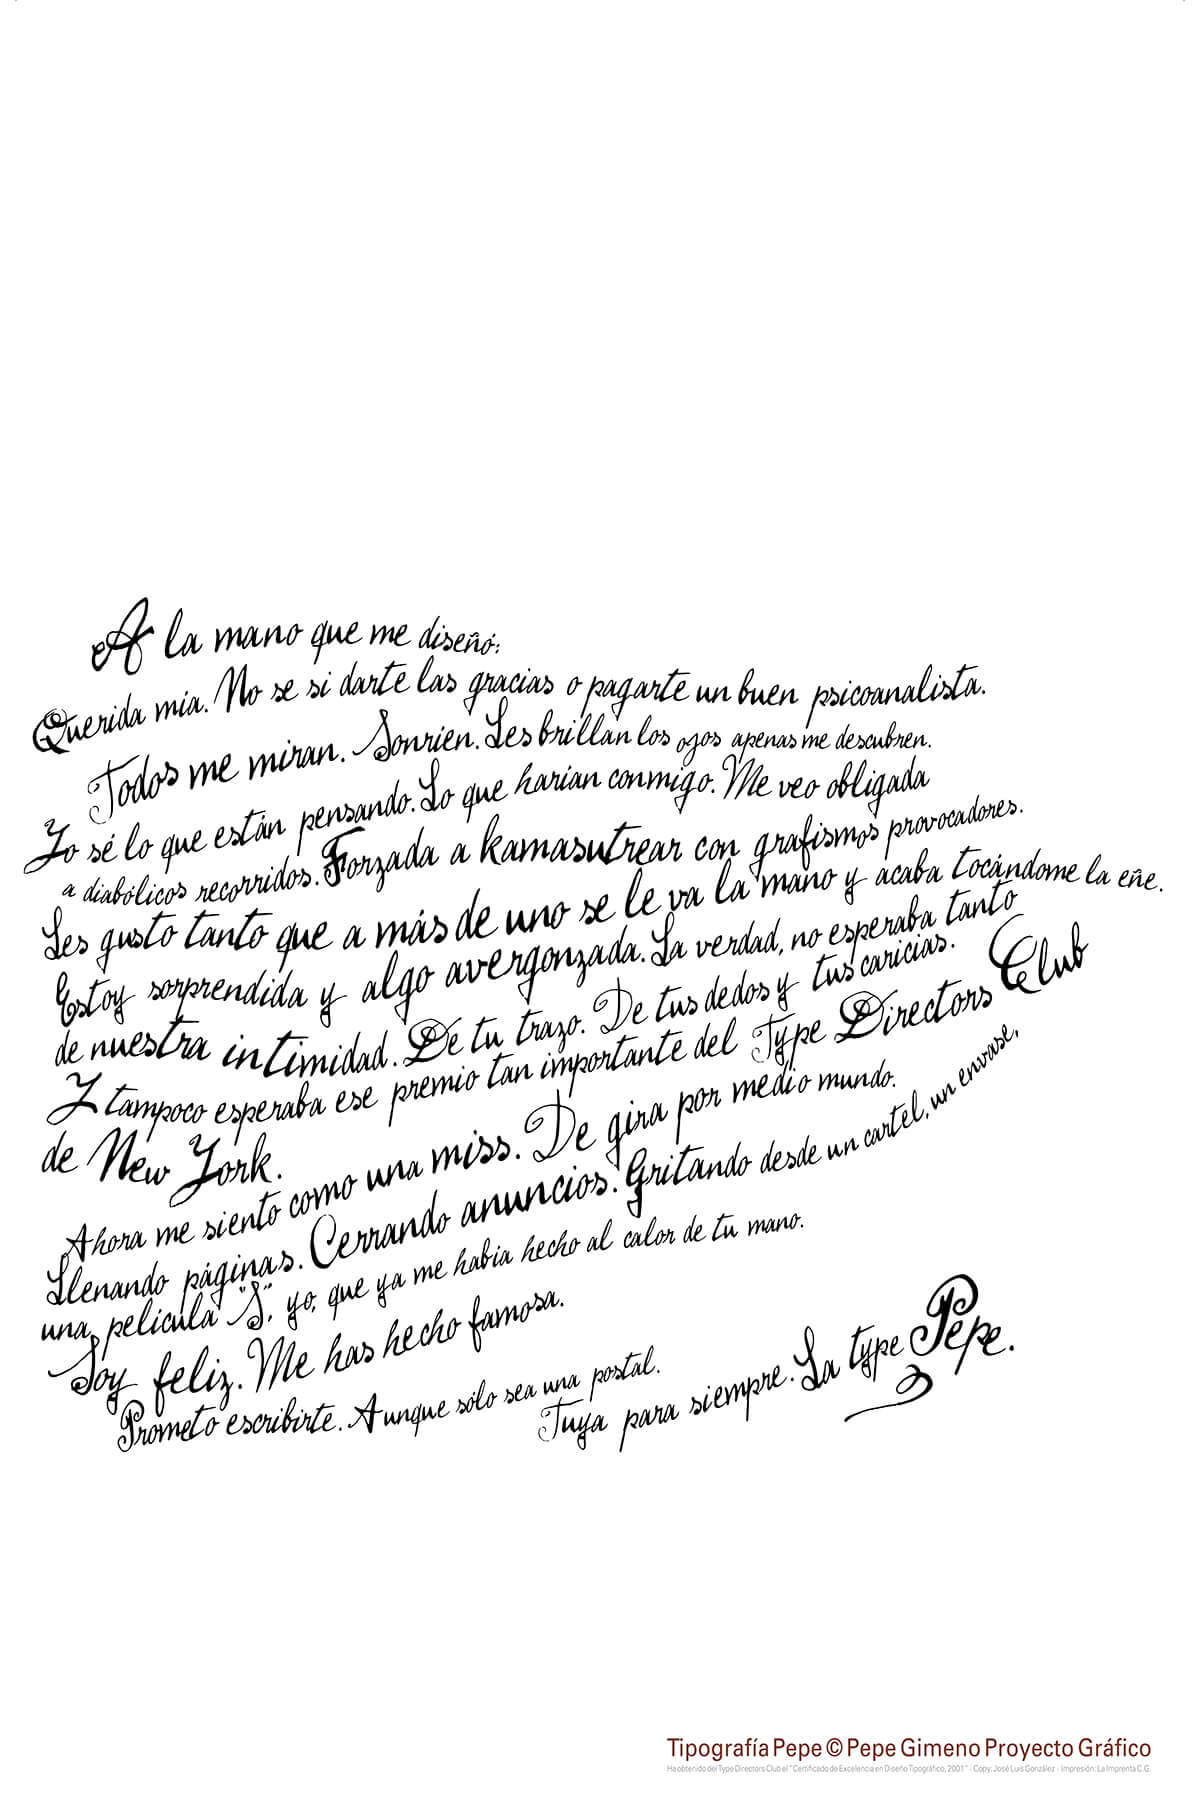 A la mano que me diseñó:
Querida mía. No se si darte las gracias o pagarte un buen psicoanalista.
Todos me miran. Sonríen. Les brillan los ojos apenas me descubren.
Yo sé lo que están pensando. Lo que harían conmigo. Me veo obligada
a diabólicos recorridos. Forzada a kamasutrear con grafismos provocadores.
Les gusto tanto que a más de uno se le va la mano y acaba tocándome la eñe.
Estoy sorprendida y algo avergonzada. La verdad, no esperaba tanto
de nuestra intimidad. De tu trazo. De tus dedos y tus caricias.
Y tampoco esperaba ese premio tan importante del Type Directors Club
de New York.
Ahora me siento como una miss. De gira por medio mundo.
Llenando páginas. Cerrando anuncios. Gritando desde un cartel, un envase,
una película "S", yo, que ya me había hecho al calor de tu mano.
Soy feliz. Me has hecho famosa.
Prometo escribirte. Aunque sólo sea una postal.
Tuya para siempre. La type Pepe.
Tipografía Pepe © Pepe Gimeno Proyecto Gráfico
Ha obtenido del Type Directors Club el "Certificado de Excelencia en Diseño Tipográfico, 2001" - Copy: José Luis González - Impresión: La Imprenta C.G.